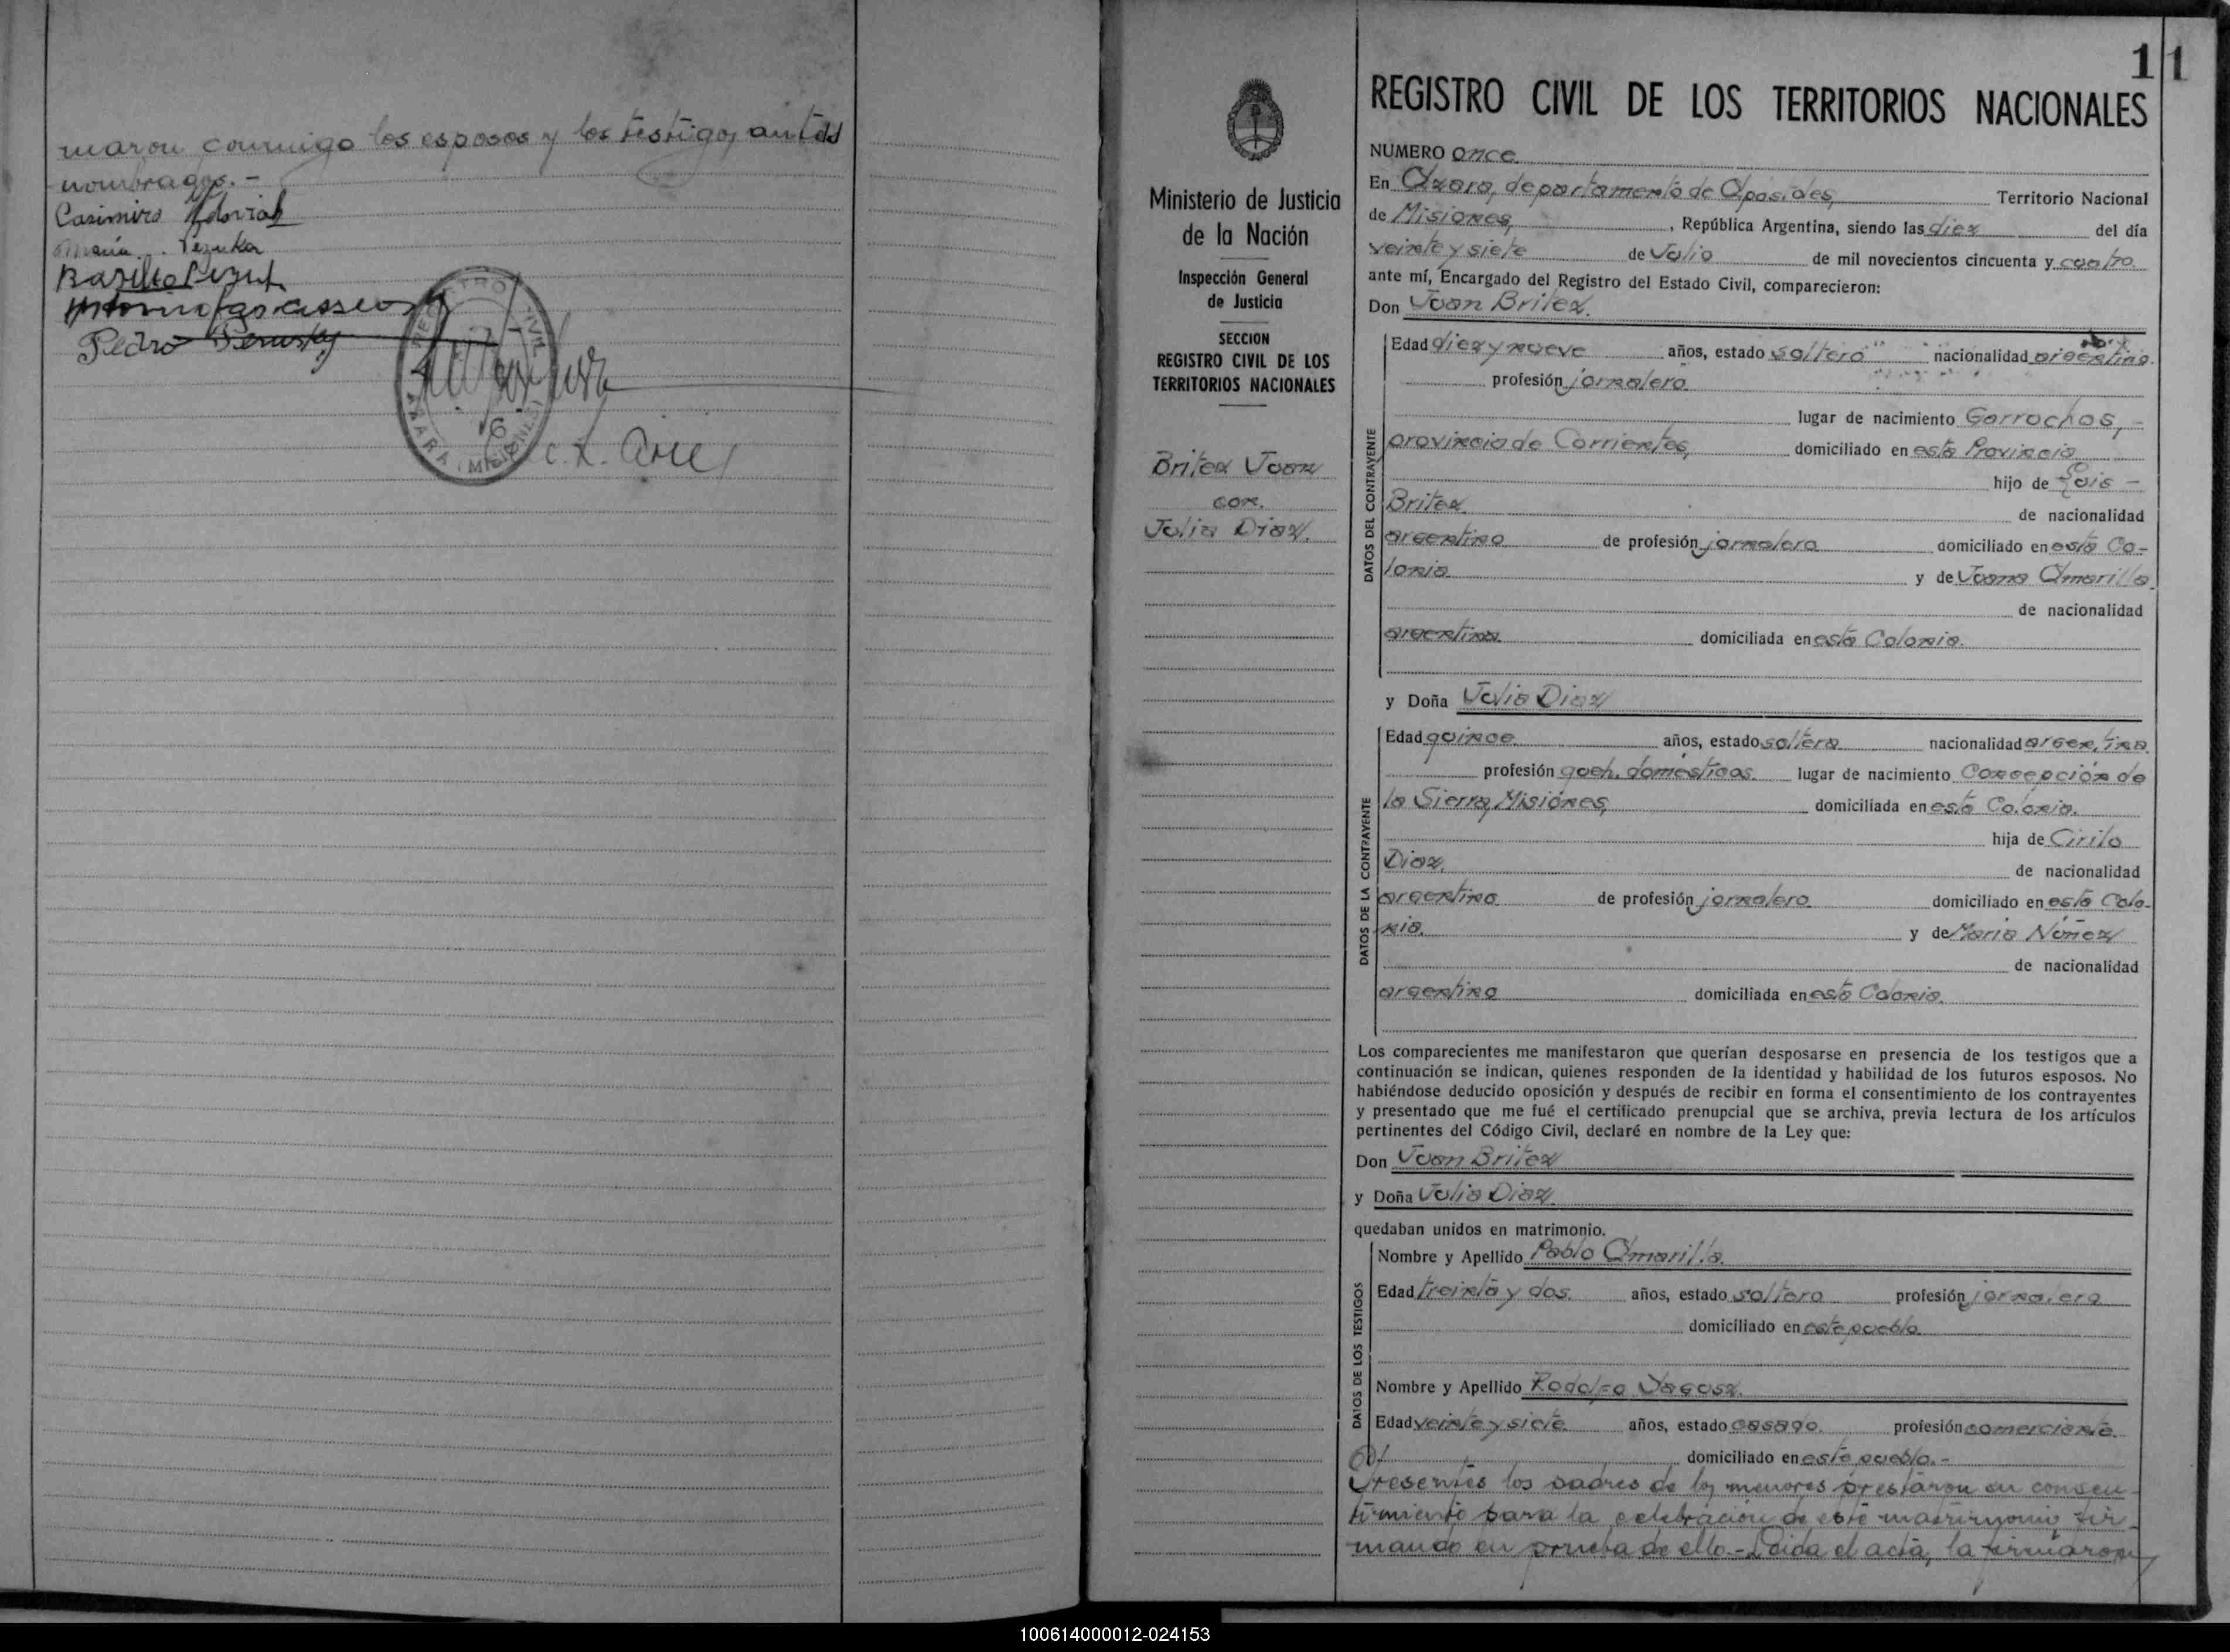 maron conmigo los esposos y los testigos antes
nombrados.-
Casimiro
María
Basilio
Pedro
REGISTRO CIVIL
AZARA (MISIONES)
11
REGISTRO CIVIL DE LOS TERRITORIOS NACIONALES
Ministerio de Justicia
de la Nación
Inspección General
de Justicia
SECCION
REGISTRO CIVIL DE LOS
TERRITORIOS NACIONALES
Britez Juan
con
Julia Diaz.
NUMERO once
En Azara, departamento de Apóstoles, Territorio Nacional
de Misiones, , República Argentina, siendo las diez del día
veinte y siete de Julio de mil novecientos cincuenta y cuatro
ante mí, Encargado del Registro del Estado Civil, comparecieron:
Don Juan Britez.
DATOS DEL CONTRAYENTE
Edad diez y nueve años, estado soltero nacionalidad argentino.
profesión jornalero
lugar de nacimiento Garruchos, -
provincia de Corrientes, domiciliado en esta Provincia
hijo de Luis -
Britez de nacionalidad
argentino de profesión jornalero domiciliado en esta Co-
lonia y de Juana Amarilla
de nacionalidad
argentina domiciliada en esta Colonia.
y Doña Julia Diaz
DATOS DE LA CONTRAYENTE
Edad quince años, estado soltera nacionalidad argentina
profesión queh. domésticos lugar de nacimiento Concepción de
la Sierra, Misiones, domiciliada en esta Colonia.
hija de Cirilo
Diaz. de nacionalidad
argentino de profesión jornalero domiciliado en esta Colo-
nia. y de Maria Núñez
de nacionalidad
argentina domiciliada en esta Colonia.
Los comparecientes me manifestaron que querían desposarse en presencia de los testigos que a
continuación se indican, quienes responden de la identidad y habilidad de los futuros esposos. No
habiéndose deducido oposición y después de recibir en forma el consentimiento de los contrayentes
y presentado que me fué el certificado prenupcial que se archiva, previa lectura de los artículos
pertinentes del Código Civil, declaré en nombre de la Ley que:
Don Juan Britez
y Doña Julia Diaz
quedaban unidos en matrimonio.
DATOS DE LOS TESTIGOS
Nombre y Apellido Pablo Amarilla.
Edad treinta y dos. años, estado soltero profesión jornalero
domiciliado en este pueblo
Nombre y Apellido Rodolfo
Edad veinte y siete años, estado casado profesión comerciante
domiciliado en este pueblo.-
Presentes los padres de los menores prestaron su consen-
timiento para la celebración de este matrimonio fir-
mando en prueba de ello.- Leida el acta, la firmaron
100614000012-024153